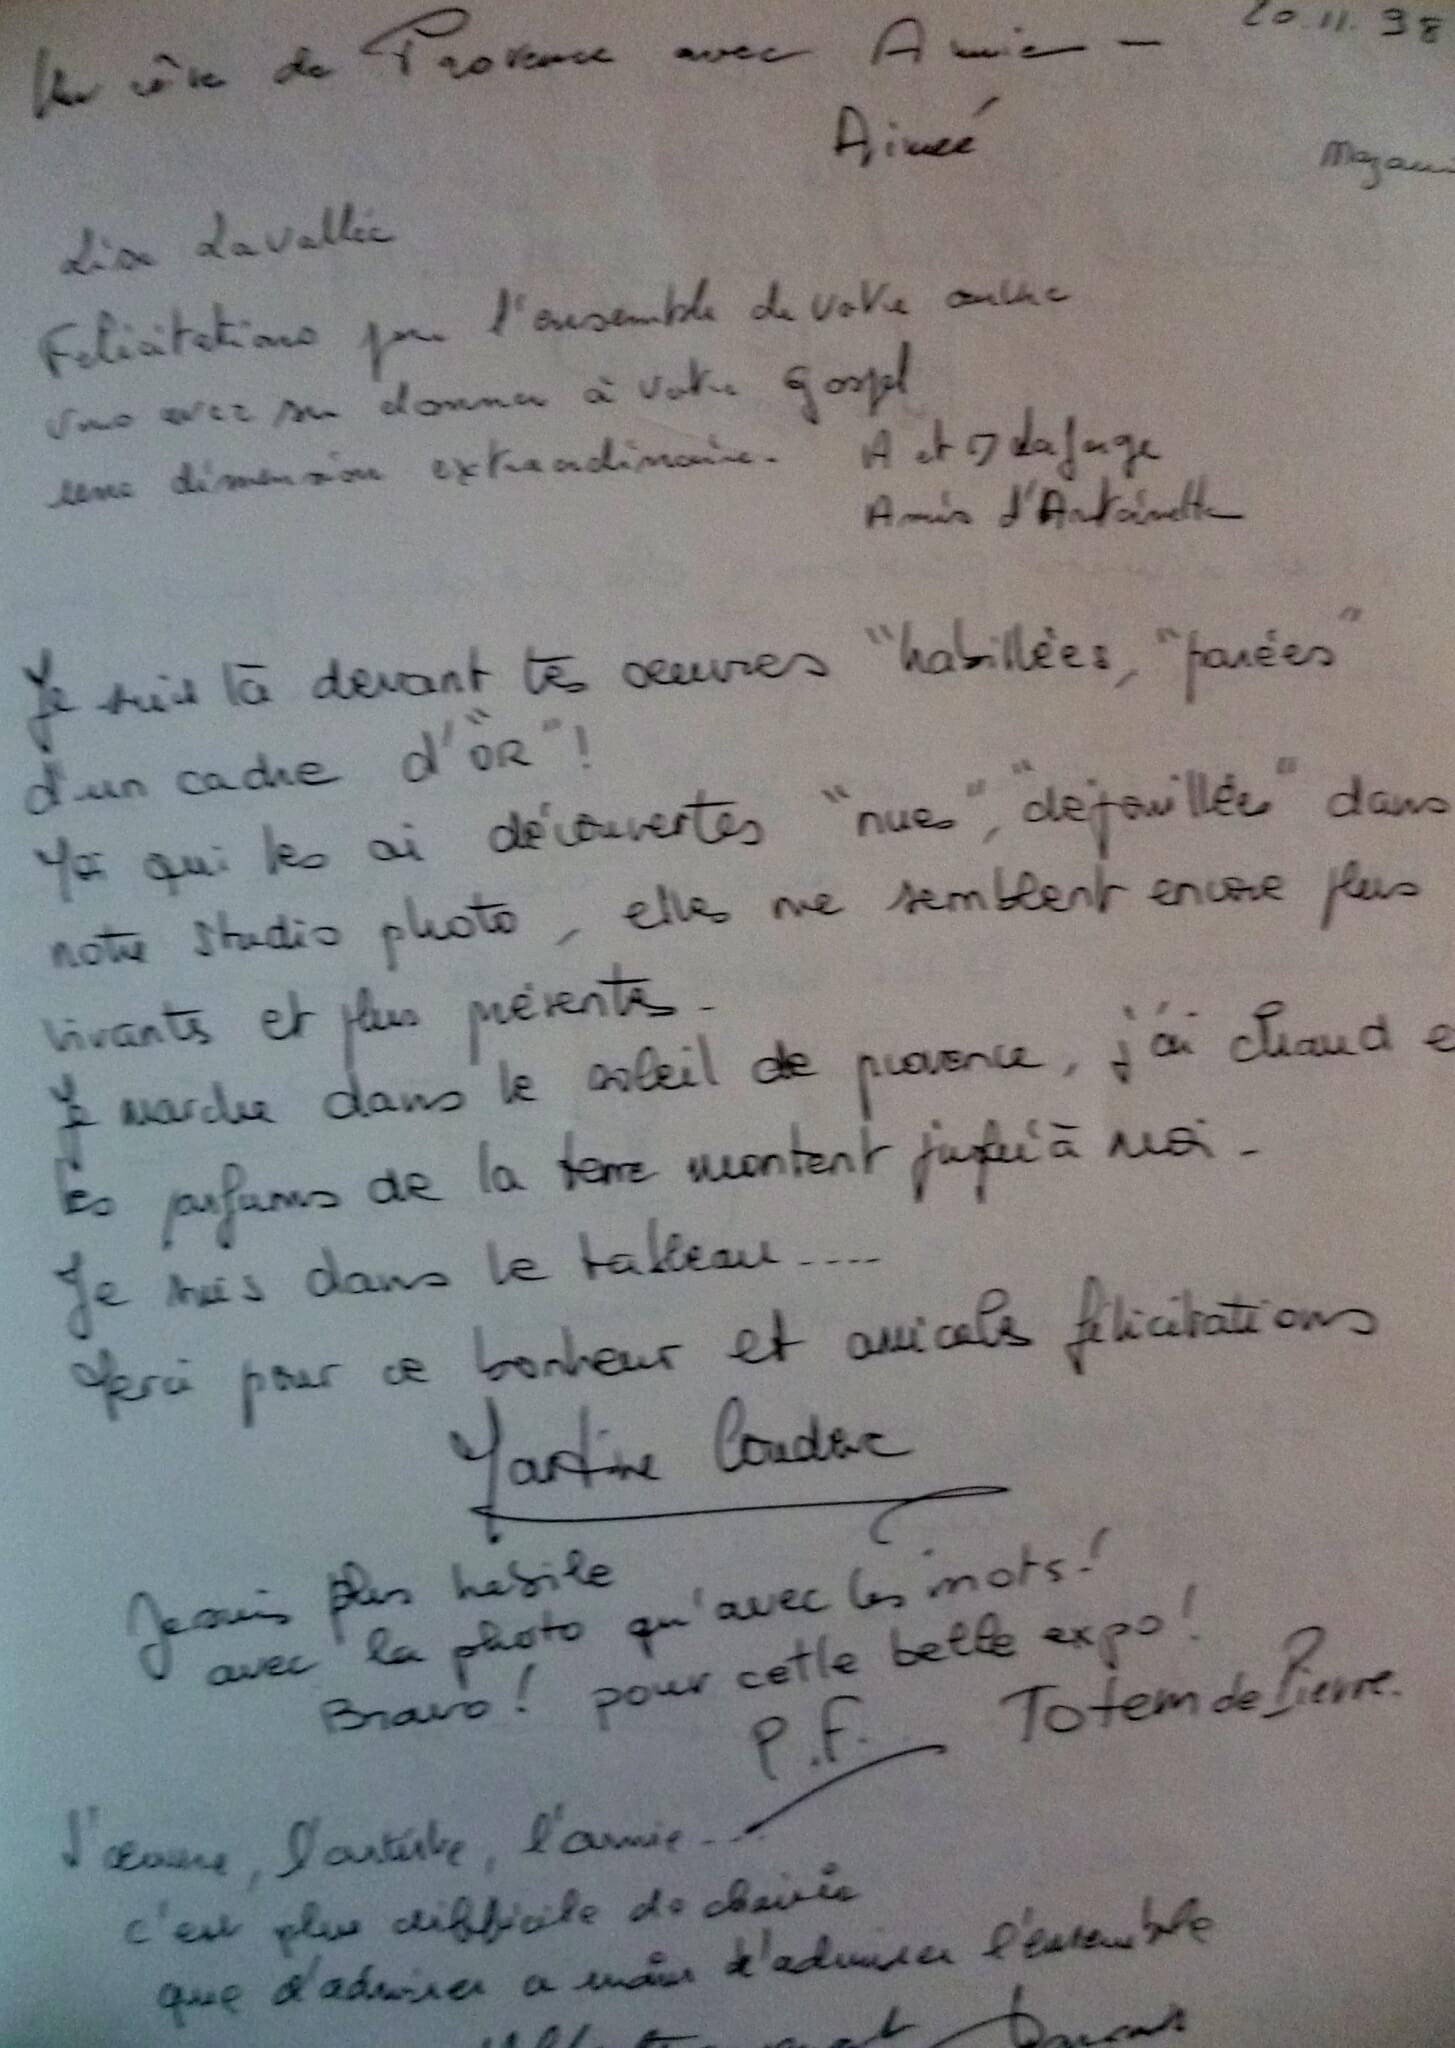 20.11.98
Un rêve de Provence avec Annie -
Aimeé
Lise Lavallée
Felicitations pour l'ensemble de votre œuvre
vous avez su donner à votre gospel
une dimension extraordinaire.
A et Lafarge
Amis d'Antoinette
Je suis là devant tes oeuvres "habillées, "parées"
d'un cadre d'"OR"!
Moi qui les ai découvertes "nues", "dépouillées" dans
notre studio photo, elles me semblent encore plus
vivants et plus présents -
Je marche dans le soleil de provence, j'ai chaud e
les parfums de la terre montent jusqu'à moi -
Je suis dans le tableau ....
Merci pour ce bonheur et amicals félicitations
Martine Couderc
Je suis plus habile
avec la photo qu'avec les mots!
Bravo! pour cette belle expo!
P.F. Totem de Pierre.
L'œuvre, l'artiste, l'amie ...
c'est plus difficile de choisir
que d'admirer a moins d'admirer l'ensemble